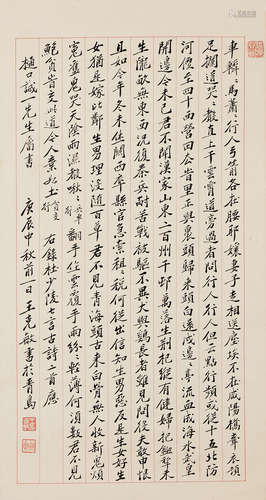 車轔々馬蕭々行人弓箭各在腰耶孃妻子走相送塵埃不見咸陽橋牽衣頓
足攔道哭々聲直上干雲霄道旁過者問行人行人但云點行頻或從十五北防
河便至四十西營田去時里正與裹頭歸來頭白還戍邊々亭流血成海水武皇
開邊意未已君不聞漢家山東二百州千邨萬落生荊杞縱有健婦把鋤犁禾
生隴畝無東西況復秦兵耐苦戰被驅不異犬與雞長者雖有問役夫敢申恨
且如今年冬未休關西卒縣官急索租々稅何從出信知生男惡反是生女好生
女猶是嫁比鄰生男埋沒隨百草君不見青海頭古來白骨無人收新鬼煩
冤舊鬼哭天陰雨濕聲啾々兵車行翻手作雲覆手雨紛々輕薄何須數君不見
鮑管貧時交此道今人棄如土貧交行右錄杜少陵七言古詩二首應
樋口誠一先生屬書庚辰中秋前一日王克敏書於青島